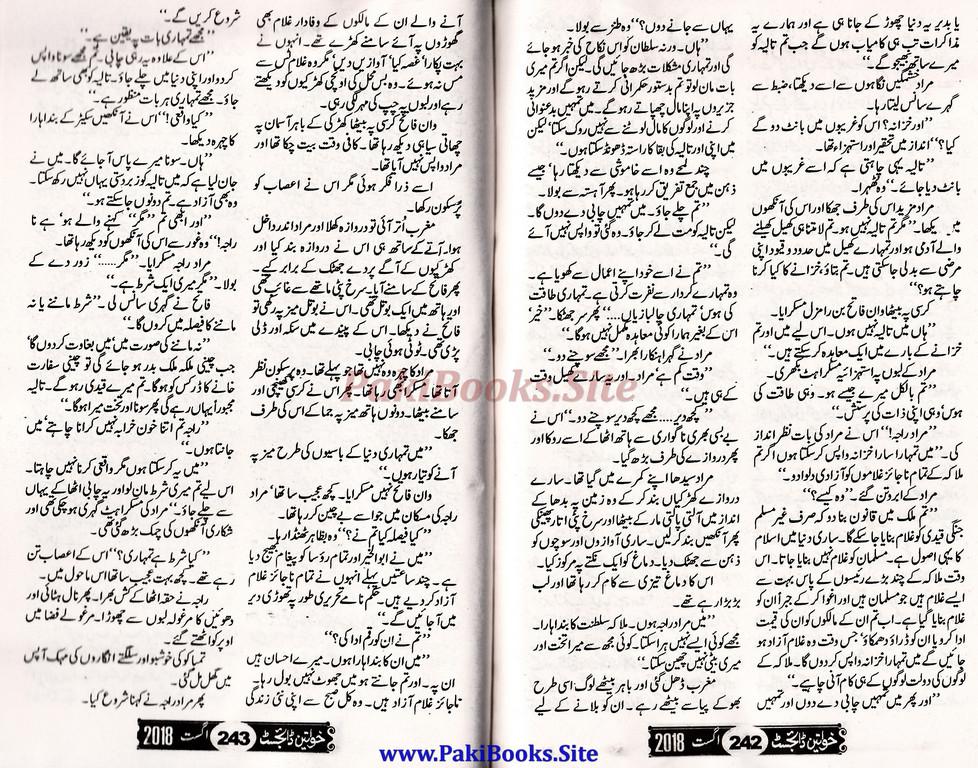 یا بدیر یہ دنیا چھوڑ کے جانا ہی ہے اور ہمارے یہ
مذاکرات تب ہی کامیاب ہوں گے جب تم تالیہ کو
میرے ساتھ بھیجو گے۔“
مراد خشمگیں نگاہوں سے اسے دیکھتا، ضبط سے
گہرے سانس لیتا رہا۔
”اور خزانہ؟ اس کو غریبوں میں بانٹ دو گے
کیا؟“ انداز میں تحقیر اور استہزاء تھا۔
”تالیہ یہی چاہتی ہے کہ اسے غریبوں میں
بانٹ دیا جائے۔“ وہ ٹھہرا۔
مراد مزید اس کی طرف جھکا اور اس کی آنکھوں
میں دیکھا۔ ”مگر تم تالیہ نہیں ہو۔ تم لامتناہی کھیل کھیلنے
والے آدمی ہو اور تمہارے کھیل میں حدود و قیود اپنی
مرضی سے بدلی جا سکتی ہیں۔ تم بتاؤ، خزانے کا کیا کرنا
چاہتے ہو؟“
کرسی پہ بیٹھا وان فاتح بن رامزل مسکرایا۔
”ہاں میں تالیہ نہیں ہوں۔ اس لیے میں اور تم
خزانے کے بارے میں ایک معاہدہ کر سکتے ہیں۔“
مراد کے لبوں پہ استہزائیہ مسکراہٹ بکھری۔
”تم بالکل میرے جیسے ہو۔ وہی طاقت کی
ہوس وہی اپنی ذات کی پرستش۔“
”مراد راجہ!“ اس نے مراد کی بات نظر انداز
کی۔ ”میں تمہارا سارا خزانہ واپس کر سکتا ہوں اگر تم
ملاکہ کے تمام ناجائز غلاموں کو آزادی دلوا دو۔“
مراد کے ابرو تن گئے۔ ”وہ کیسے؟“
”تم ملک میں قانون بنا دو کہ صرف غیر مسلم
جنگی قیدی کو غلام بنایا جا سکے گا۔ ساری دنیا میں اسلام
کا یہی اصول ہے۔ مسلمان کو غلام نہیں بنایا جاتا۔ اس
وقت ملاکہ کے چند بڑے رئیسوں کے پاس بہت سے
ایسے غلام ہیں جو مسلمان ہیں اور اغوا کر کے جبراً ان کو
غلام بنایا گیا ہے۔ اب تم ان کے مالکوں کو ان کی قیمت
ادا کرو یا ان کو ڈراؤ دھمکاؤ، جس وقت وہ غلام آزاد ہو
جائیں گے میں تمہارا خزانہ واپس کر دوں گا۔ ملاکہ کے
لوگوں کی دولت لوگوں کے ہی کام آنی چاہیے۔“
”اور پھر میں تمہیں چابی دے دوں اور تمہیں
یہاں سے جانے دوں؟“ وہ طنز سے بولا۔
”ہاں۔ ورنہ سلطان کو اس نکاح کی خبر ہو جائے
گی اور تمہاری مشکلات بڑھ جائیں گی۔ لیکن اگر تم میری
بات مان لو تو تم بدستور حکمرانی کرتے رہو گے اور مزید
جزیروں پہ اپنا مال چھپاتے رہو گے۔ میں تمہیں بدعنوانی
کرنے اور لوگوں کا مال لوٹنے سے نہیں روک سکتا، لیکن
میں اپنی اور تالیہ کی بقا کا راستہ ڈھونڈ سکتا ہوں۔“
چند لمحے وہ اسے خاموشی سے دیکھتا رہا، جیسے
ذہن میں جمع تفریق کر رہا ہو۔ پھر آہستہ سے بولا۔
”تم چلے جاؤ۔ میں تمہیں چابی دے دوں گا۔
لیکن تالیہ کو مت لے کر جاؤ۔ وہ گئی تو واپس نہیں آئے
گی۔“
”تم نے اسے خود اپنے اعمال سے کھویا ہے۔
وہ تمہارے کردار سے نفرت کرتی ہے۔ تمہاری طاقت
کی ہوس، تمہاری چالبازیاں......“ پھر سر جھٹکا۔ ”خیر،
اس کے بغیر ہمارا کوئی معاہدہ مکمل نہیں ہو گا۔“
مراد نے گہرا ہنکارا بھرا۔ ”مجھے سوچنے دو۔“
”وقت کم ہے مراد۔ اور یہ سارے کھیل وقت
کے ہی ہیں۔“
”کچھ دیر.... مجھے کچھ دیر سوچنے دو۔“ اس نے
بے بسی بھری ناگواری سے ہاتھ اٹھا کے اسے روکا اور
پھر دروازے کی طرف بڑھ گیا۔
مراد سیدھا اپنے کمرے میں گیا تھا۔ سارے
دروازے کھڑکیاں بند کر کے وہ زمین پہ بدھا کے
انداز میں آلتی پالتی مار کے بیٹھا اور سرخ پٹی اتار پھینکی
پھر آنکھیں بند کر لیں۔ ساری آوازوں اور سوچوں کو
ذہن سے جھٹک دیا۔ دماغ کو ایک نکتے پہ مرکوز کیا۔
اس کا دماغ تیزی سے کام کر رہا تھا اور لب
بڑبڑا رہے تھے۔
”میں مراد راجہ ہوں۔ ملاکہ سلطنت کا بنداہارا۔
مجھے کوئی ایسے نہیں ہرا سکتا۔ کوئی مجھ سے میرا تخت اور
میری بیٹی نہیں چھین سکتا۔“
مغرب ڈھل گئی اور باہر بیٹھے لوگ اسی طرح
بھوکے پیاسے بیٹھے رہے۔ ان کو بلانے کے لیے
خواتین ڈائجسٹ 242 اگست 2018
آنے والے ان کے مالکوں کے وفادار غلام بھی
گھوڑوں پہ آئے سامنے کھڑے تھے۔ انہوں نے
بہت پکارا، غصہ کیا، آوازیں دیں، مگر وہ غلام کس سے
مس نہ ہوئے۔ وہ بس محل کی اونچی کھڑکیوں کو دیکھتے
رہے اور لبوں پہ چپ کی مہر لگی رہی۔
وان فاتح کرسی پہ بیٹھا کھڑکی کے باہر آسمان پہ
چھاتی سیاہی دیکھ رہا تھا۔ کافی وقت بیت چکا تھا اور
مراد واپس نہیں آیا تھا۔
اسے ذرا فکر ہوئی مگر اس نے اعصاب کو
پرسکون رکھا۔
مغرب اتر آئی تو دروازہ کھلا اور مراد اندر داخل
ہوا۔ آتے کے ساتھ ہی اس نے دروازہ بند کیا اور
کھڑکیوں کے آگے پردے جھٹک کے برابر کیے۔
پھر فاتح کے سامنے آیا۔ سرخ پٹی ماتھے سے غائب تھی
اور ہاتھ میں ایک بوتل تھی۔ اس نے بوتل میز پہ رکھی تو
فاتح نے دیکھا۔ اس کے پیندے میں سکہ اور ڈلی
پڑی تھی۔ ٹوٹی ہوئی چابی۔
مراد کا چہرہ وہ نہیں تھا جو پہلے تھا۔ وہ پرسکون نظر
آتا تھا۔ پھر اس نے کرسی کھینچی اور
سامنے بیٹھا۔ دونوں ہاتھ میز پہ جما کے اس کی طرف
جھکا۔
”میں تمہاری دنیا کے باسیوں کی طرح میز پہ
آنے کو تیار ہوں۔“
وان فاتح نہیں مسکرایا۔ کچھ عجیب سا تھا، مراد
راجہ کی مسکان میں جو اسے بے چین کر رہا تھا۔
”کیا فیصلہ کیا تم نے؟“ وہ بظاہر ٹھنڈا رہا۔
”میں نے ابوالخیر اور تمام رؤسا کو پیغام بھیج دیا
ہے۔ چند ساعتیں پہلے انہوں نے تمام ناجائز غلام
آزاد کر دیے ہیں۔ حکم نامے تحریری طور پہ تھوڑی دیر
میں آ جائیں گے۔“
”تم نے ان کو رقم ادا کی؟“
”میں ان کا بنداہارا ہوں۔ میرے احسان ہیں
ان پہ۔ اور تم جانتے ہو میں جھوٹ نہیں بول رہا۔
ناجائز غلام آزاد ہیں۔ وہ کل صبح سے اپنی نئی زندگی
شروع کریں گے۔“
”مجھے تمہاری بات پہ یقین ہے۔“
”اس کے علاوہ یہ رہی چابی۔ تم مجھے سونا واپس
کر دو اور اپنی دنیا میں چلے جاؤ۔ تالیہ کو بھی ساتھ لے
جاؤ۔ مجھے تمہاری ہر بات منظور ہے۔“
”کیا واقعی!“ اس نے آنکھیں سکیڑ کے بنداہارا
کا چہرہ دیکھا۔
”ہاں۔ سونا میرے پاس آ جائے گا۔ میں نے
جان لیا ہے کہ میں تالیہ کو زبردستی یہاں نہیں رکھ سکتا۔
وہ بھی آزاد ہے۔ تم دونوں جا سکتے ہو۔“
”اور ابھی تم ”مگر“ کہنے والے ہو، ہے نا
راجہ!“ وہ غور سے اس کی آنکھوں کو دیکھ رہا تھا۔
مراد راجہ مسکرایا۔ ”مگر......“ زور دے کے
بولا۔ ”مگر میری ایک شرط ہے۔“
فاتح نے گہری سانس لی۔ ”شرط ماننے یا نہ
ماننے کا فیصلہ میں کروں گا۔“
”نہ ماننے کی صورت میں، میں بغاوت کر دوں گا،
جب چینی ملکہ ملک بدر ہو جائے گی تو چینی سفارت
خانے کا ڈر کس کو ہو گا۔ تم میرے قیدی رہو گے۔ تالیہ
مجبوراً یہاں رہے گی پھر سونا اور تخت میرا ہو گا۔“
”راجہ تم اتنا خون خرابہ نہیں کرانا چاہتے، میں
جانتا ہوں۔“
”میں یہ کر سکتا ہوں مگر واقعی کرنا نہیں چاہتا۔
اس لیے تم میری شرط مان لو اور یہ چابی اٹھا کے یہاں
سے چلے جاؤ۔“ مراد کی مسکراہٹ گہری ہو چکی تھی اور
شکاری آنکھوں کی چمک بڑھ گئی تھی۔
”کیا شرط ہے تمہاری؟“ اس کے اعصاب تن
رہے تھے۔ کچھ بہت عجیب سا تھا اس ماحول میں۔
راجہ نے حقہ اٹھا کے کش بھرا۔ پھر نال ہٹائی اور
دھوئیں کا مرغولہ لبوں سے چھوڑا۔ مرغولے فضا میں
اوپر کو اٹھتے گئے۔
تمباکو کی خوشبو اور سلگتے انگاروں کی مہک آپس
میں گھل مل گئی۔
پھر مراد راجہ نے کہنا شروع کیا۔
خواتین ڈائجسٹ 243 اگست 2018
PakiBooks.Site
www.PakiBooks.Site